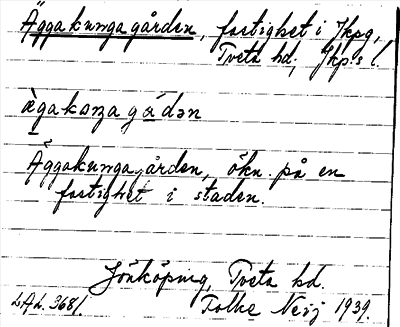 Äggakungagården, fastighet i Jkpg,
Tveta hd; Jkps l.
ägakoŋa gådən
Äggakungagården, ökn. på en
fastighet i staden.
Jönköping, Tveta hd.
LAL 3681. Folke Neij 1939.